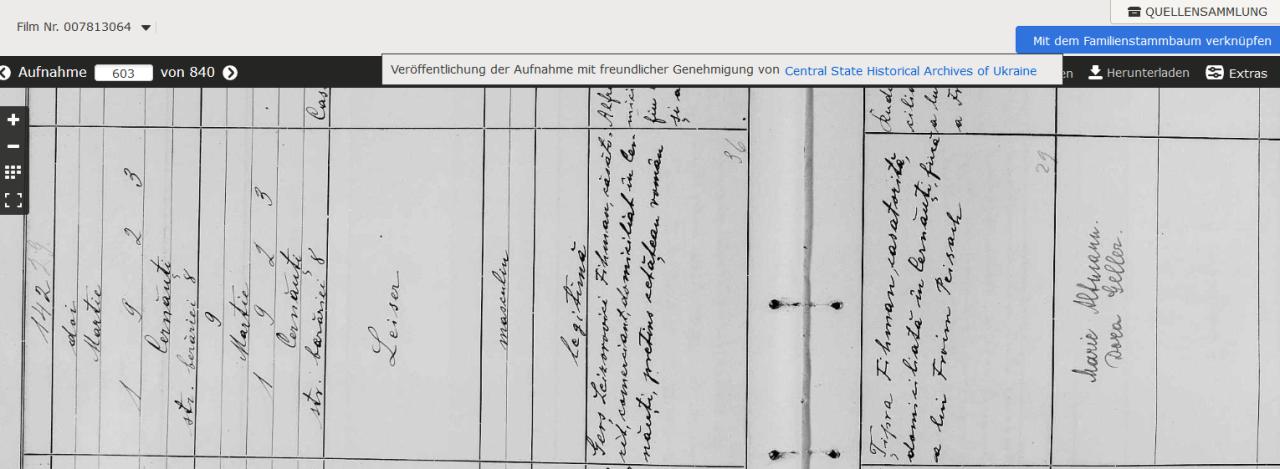 Film Nr. 007813064
QUELLENSAMMLUNG
Mit dem Familienstammbaum verknüpfen
Aufnahme 603 von 840
Veröffentlichung der Aufnahme mit freundlicher Genehmigung von Central State Historical Archives of Ukraine
en
Herunterladen
Extras
142
doi
Martie
1 9 2 3
Cernăuți
str. berăriei 8
9
Martie
1 9 2 3
Cernăuți
str. berăriei 8
Leiser
masculin
legitimă
Gers Leizorovici Fihman, căsăt.
comerciant, domiciliat în Cer-
năuți, pretins cetățean român
36
Fihman, casatorită,
domiciliată în Cernăuți, fiică
a lui Froim Peisach
29
Marie Altmann.
Dora Geller.